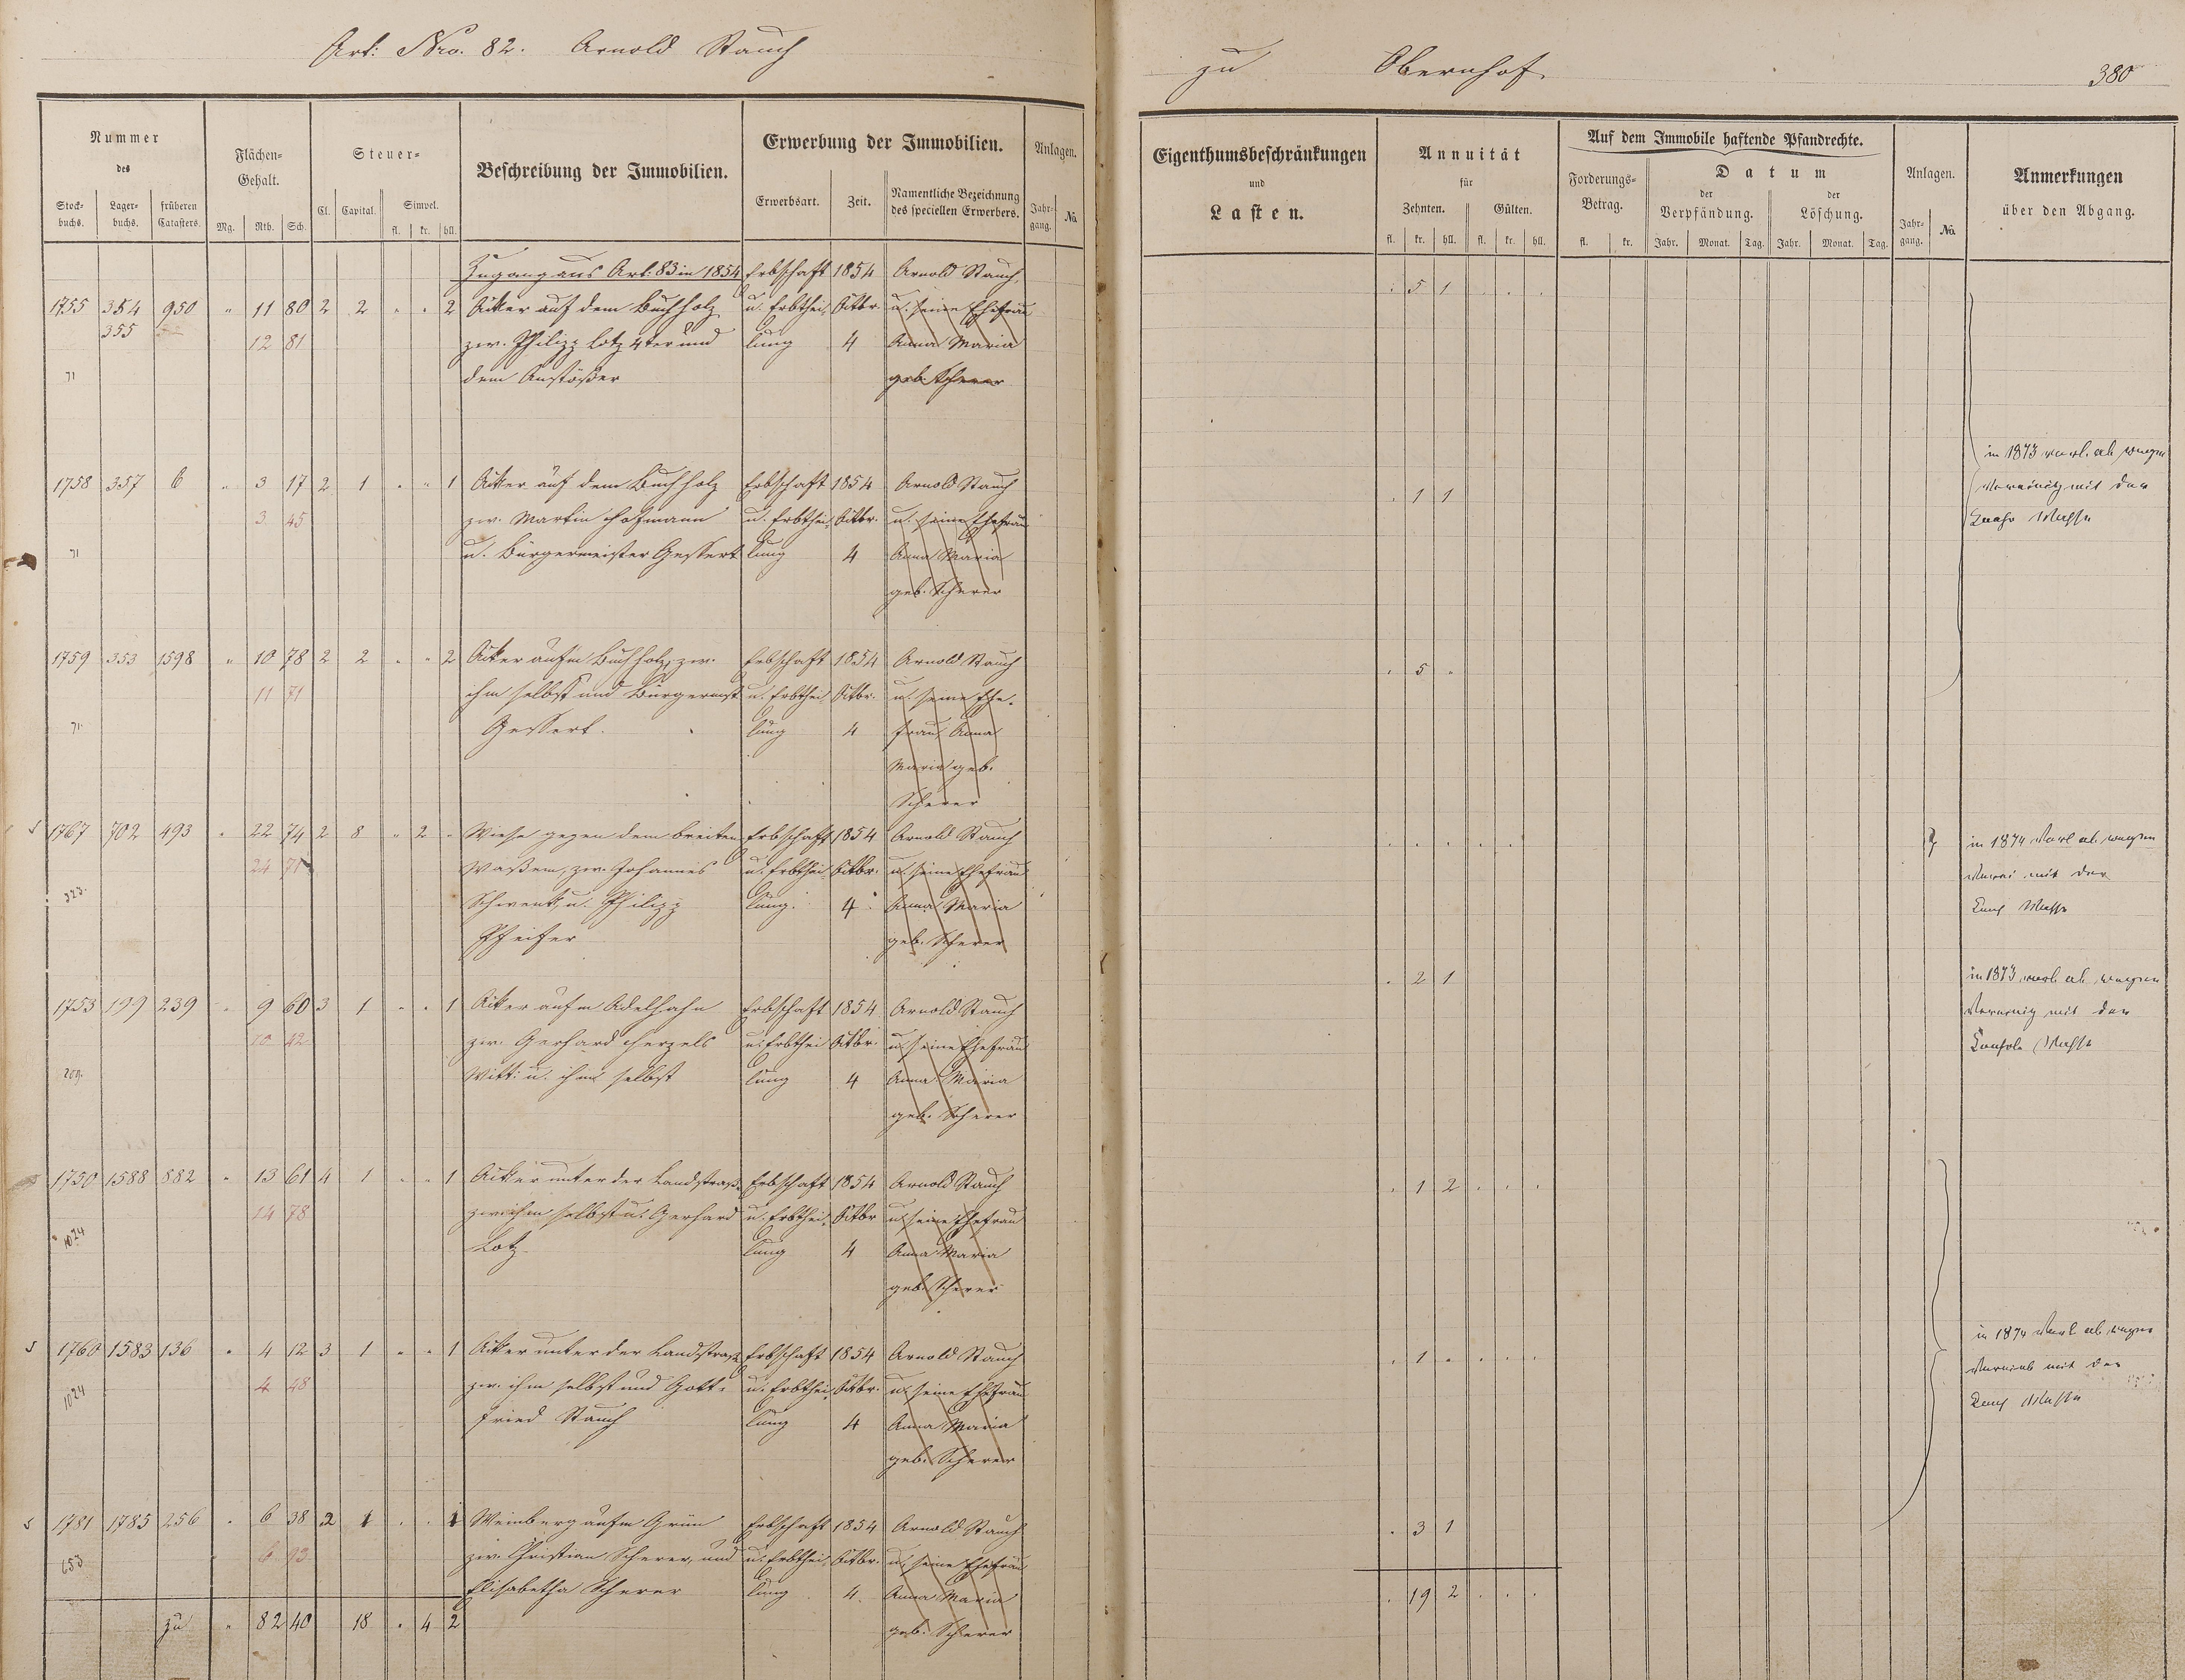 Art: Nro. 82. Arnold Stauch
zu Obernhof.
380
Nummer des
Stockbuchs. Lagerbuchs. früheren Catasters.
Flächen-Gehalt.
Mg. Rth. Sch.
Steuer-
Cl. Capital. Simpel.
fl. kr. hll.
Beschreibung der Immobilien.
Erwerbung der Immobilien.
Erwerbsart. Zeit. Namentliche Bezeichnung des speciellen Erwerbers.
Anlagen.
Jahrgang. No.
Eigenthumsbeschränkungen
und
Lasten.
Annuität
für
Zehnten. Gülten.
fl. kr. hll. fl. kr. hll.
Auf dem Immobile haftende Pfandrechte.
Forderungs-Betrag.
fl. kr.
Datum
der Verpfändung. der Löschung.
Jahr. Monat. Tag. Jahr. Monat. Tag.
Anlagen.
Jahrgang. No.
Anmerkungen
über den Abgang.
Zugang aus Art: 83 in 1854 Erbschaft 1854 Arnold Stauch
1755 354 950 " 11 80 2 2 " " 2 Acker auf dem Buchholz u. Erbthei- Octbr. u. seine Ehefrau . 5 1 . . .
355 12 81 zw. Philipp Lotz 4ter und lung 4 Anna Maria
71 dem Anstößer geb. Scherer
1758 357 6 " 3 17 2 1 " " 1 Acker auf dem Buchholz Erbschaft 1854 Arnold Stauch . 1 1
3 45 zw. Martin Hofmann u. Erbthei- Octbr. u. seine Ehefrau
71 u. Bürgermeister Gessert lung 4 Anna Maria
geb. Scherer
in 1873 ab wegen
mit der
Masse
1759 353 1598 " 10 78 2 2 " " 2 Acker aufm Buchholz, zw. Erbschaft 1854 Arnold Stauch . 5 "
11 71 ihm selbst und Bürgermst u. Erbthei Octbr. u. seine Ehe-
71. Gessert. lung 4 frau Anna
Maria geb.
Scherer
1767 702 493 " 22 74 2 8 " 2 " Wiese gegen dem breiten Erbschaft 1854 Arnold Stauch . . . . . .
24 71 Waßem, zw. Johannes u. Erbthei Octbr. u. seine Ehefrau
323. Schwenk, u. Philipp lung. 4 Anna Maria
Pfeifer geb. Scherer
in 1874 ab wegen
mit der
Masse
1753 199 239 " 9 60 3 1 " " 1 Acker aufm Adelhahn Erbschaft 1854 Arnold Stauch . 2 1
10 42 zw. Gerhard Herzels u. Erbthei Octbr. u. seine Ehefrau
209. Witt: u. ihm selbst lung 4 Anna Maria
geb. Scherer
in 1873 ab wegen
mit der
Masse
1750 1588 882 " 13 61 4 1 " " 1 Acker unter der Landstraße Erbschaft 1854 Arnold Stauch . 1 2 . . .
14 78 zw. ihm selbst u. Gerhard u. Erbthei- Octbr u. seine Ehefrau
1024 Lotz lung 4 Anna Maria
geb. Scherer
1760 1583 136 " 4 12 3 1 " " 1 Acker unter der Landstraße Erbschaft 1854 Arnold Stauch . 1 " . . .
4 48 zw. ihm selbst und Gott- u. Erbthei- Octbr. u. seine Ehefrau
1024 fried Stauch lung 4 Anna Maria
geb. Scherer
in 1874 ab wegen
mit der
Masse
1781 1785 256 " 6 38 2 1 . . 1 Weinberg aufm Grün Erbschaft 1854 Arnold Stauch . 3 1
6 93 zw. Christian Scherer, und u. Erbthei- Octbr. u. seine Ehefrau
653 Elisabetha Scherer lung 4. Anna Maria
geb. Scherer
zu " 82 40 18 " 4 2 . 19 2 . . .